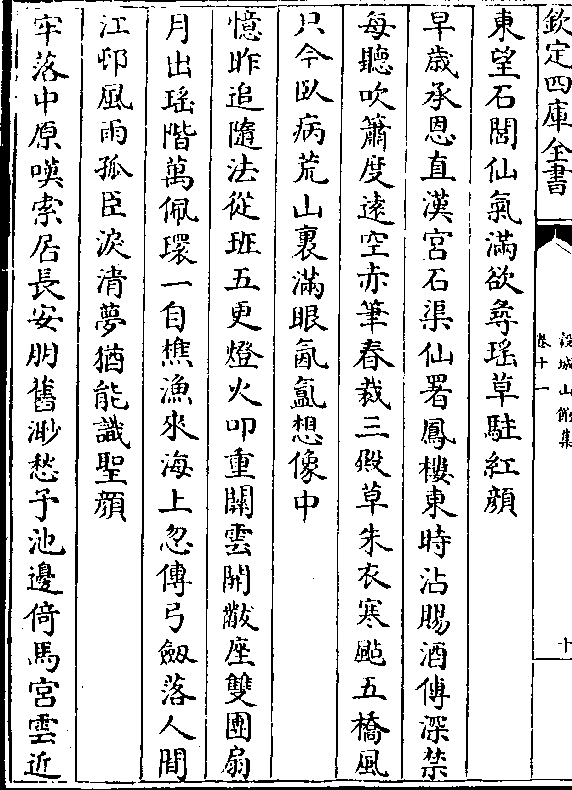 欽定四庫全書
榖城山館集
卷十一
十
東望石閭仙氣滿欲尋瑤草駐紅顔
早歲承恩直漢宮石渠仙署鳳樓東時沾賜酒傳深禁
每聽吹簫度逺空赤筆春裁三殿草朱衣寒颭五橋風
只今臥病荒山裏滿眼氤氳想像中
憶昨追隨法從班五更燈火叩重關雲開黻座雙團扇
月出瑤階萬佩環一自樵漁來海上忽傳弓劔落人間
江邨風雨孤臣淚清夢猶能識聖顔
牢落中原嘆索居長安朋舊渺愁予池邊倚馬宮雲近